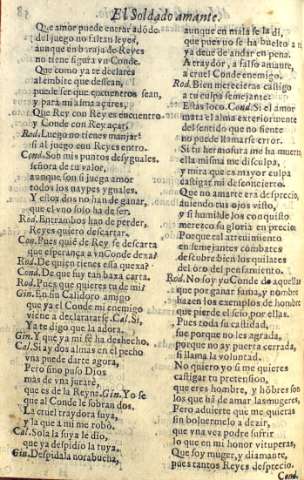 El Soldado amante.
Que amor puede entrar adõde
del juego no faltan leyes,
aunque en baraja de Reyes
no tiene figura vn Conde.
Que como ya te declares
al embite que desean,
puede ser que encuentros sean,
y para mi alma açares,
Que Rey con Rey es encuentro
y Conde con Rey açar.
Rod. Luego no tienes manjar
si al juego con Reyes entro.
Cond. Son mis puntos desyguales.
señora de tu valor,
aunque son si juega amor
todos los naypes yguales.
Y estos dos no han de ganar,
que el vno solo ha de ser.
Rod. Entrambos han de perder,
Reyes quiero descartar.
Con. Pues quiē de Rey se descarta
que esperança a vn Conde dexa?
Rod. De quien tienes essa quexa?
Cond. De que fuy tan baxa carta.
Rod. Pues que quieres tu de mi?
Gin. En fin Calidoro amigo
que ya el Conde mi enemigo
viene a declararte. Cal. Si,
Ya te digo que la adora.
Gin. Y que ya mi fè ha deshecho.
Cal. Si ay dos almas en el pecho
vna puede darte agora,
Pero sino puso Dios
mas de vna juraré,
que es de la Reyna. Gin. Yo se
que al Conde le sobran dos.
La cruel traydora suya,
y la que a mi me robò.
Cal. Sola la suya le dio,
que ya despidio la tuya.
Gin. Despidala norabuena,
aunque en mala se la dì,
que pues no se ha buelto a
ya deue de andar en pena.
A traydor, a falso amante,
a cruel Conde enemigo.
Rod. Bien merecieras castigo
a tu culpa semejante:
Estàs loco. Cond. Si el amor
mata el alma exteriormente
del sentido que no siente
no puede llamarse error.
Si tu hermosura me ha muerto
ella misma me disculpa,
y mira que es mayor culpa
castigar mi desconcierto.
Que no amarte era desprecio,
auiendo tus ojos visto,
y si humilde los conquisto
merezco su gloria en precio.
Porque tal atreuimiento
en semejantes combates
descubre bien los quilates
del oro del pensamiento.
Rod. No soy yo Conde de aquellas
que por ganar fama, y nombre
hazen los exemplos de hombre
que pierde el seso por ellas.
Pues toda su castidad,
fue porque no les agrada,
porque no ay puerta cerrada,
si llama la voluntad.
No quiero yo si me quieres
castigar tu pretension,
que eres hombre, y hõbres son
los que hã de amar las mugeres.
Pero aduierte que me quieras
sin boluermelo a dezir,
que vna vez podre sufrir
lo que en mi honor vituperas,
Que soy muger, y diamante,
pues tantos Reyes desprecio.
Cond.